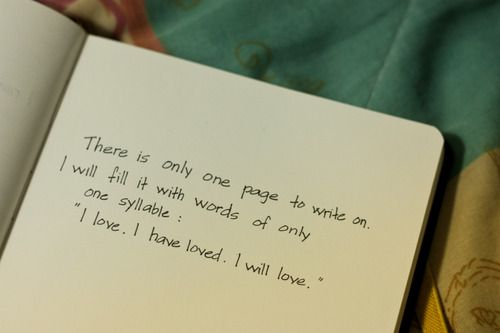 There is only one page to write on.
I will fill it with words of only
one syllable:
"I love. I have loved. I will love."